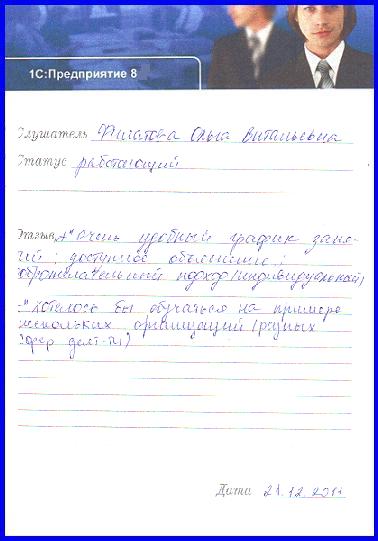 1С:Предприятие 8
Слушатель Филатова Ольга Витальевна
Статус работающий
Отзыв „+" Очень удобный график заня-
тий; доступное объяснение;
доброжелательный подход (индивидуальный)
„-" Хотелось бы обучаться на примере
нескольких организаций (разных
сфер деят-ти)
Дата 21.12.2011